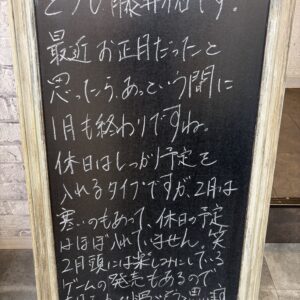 どうも藤井です。
最近お正月だったと
思ったら、あっという間に
1月も終わりですね。
休日はしっかり予定を
入れるタイプですが、2月は
寒いのもあって、休日の予定
はほぼ入れていません。笑
2月頭には楽しみにしている
ゲームの発売もあるので